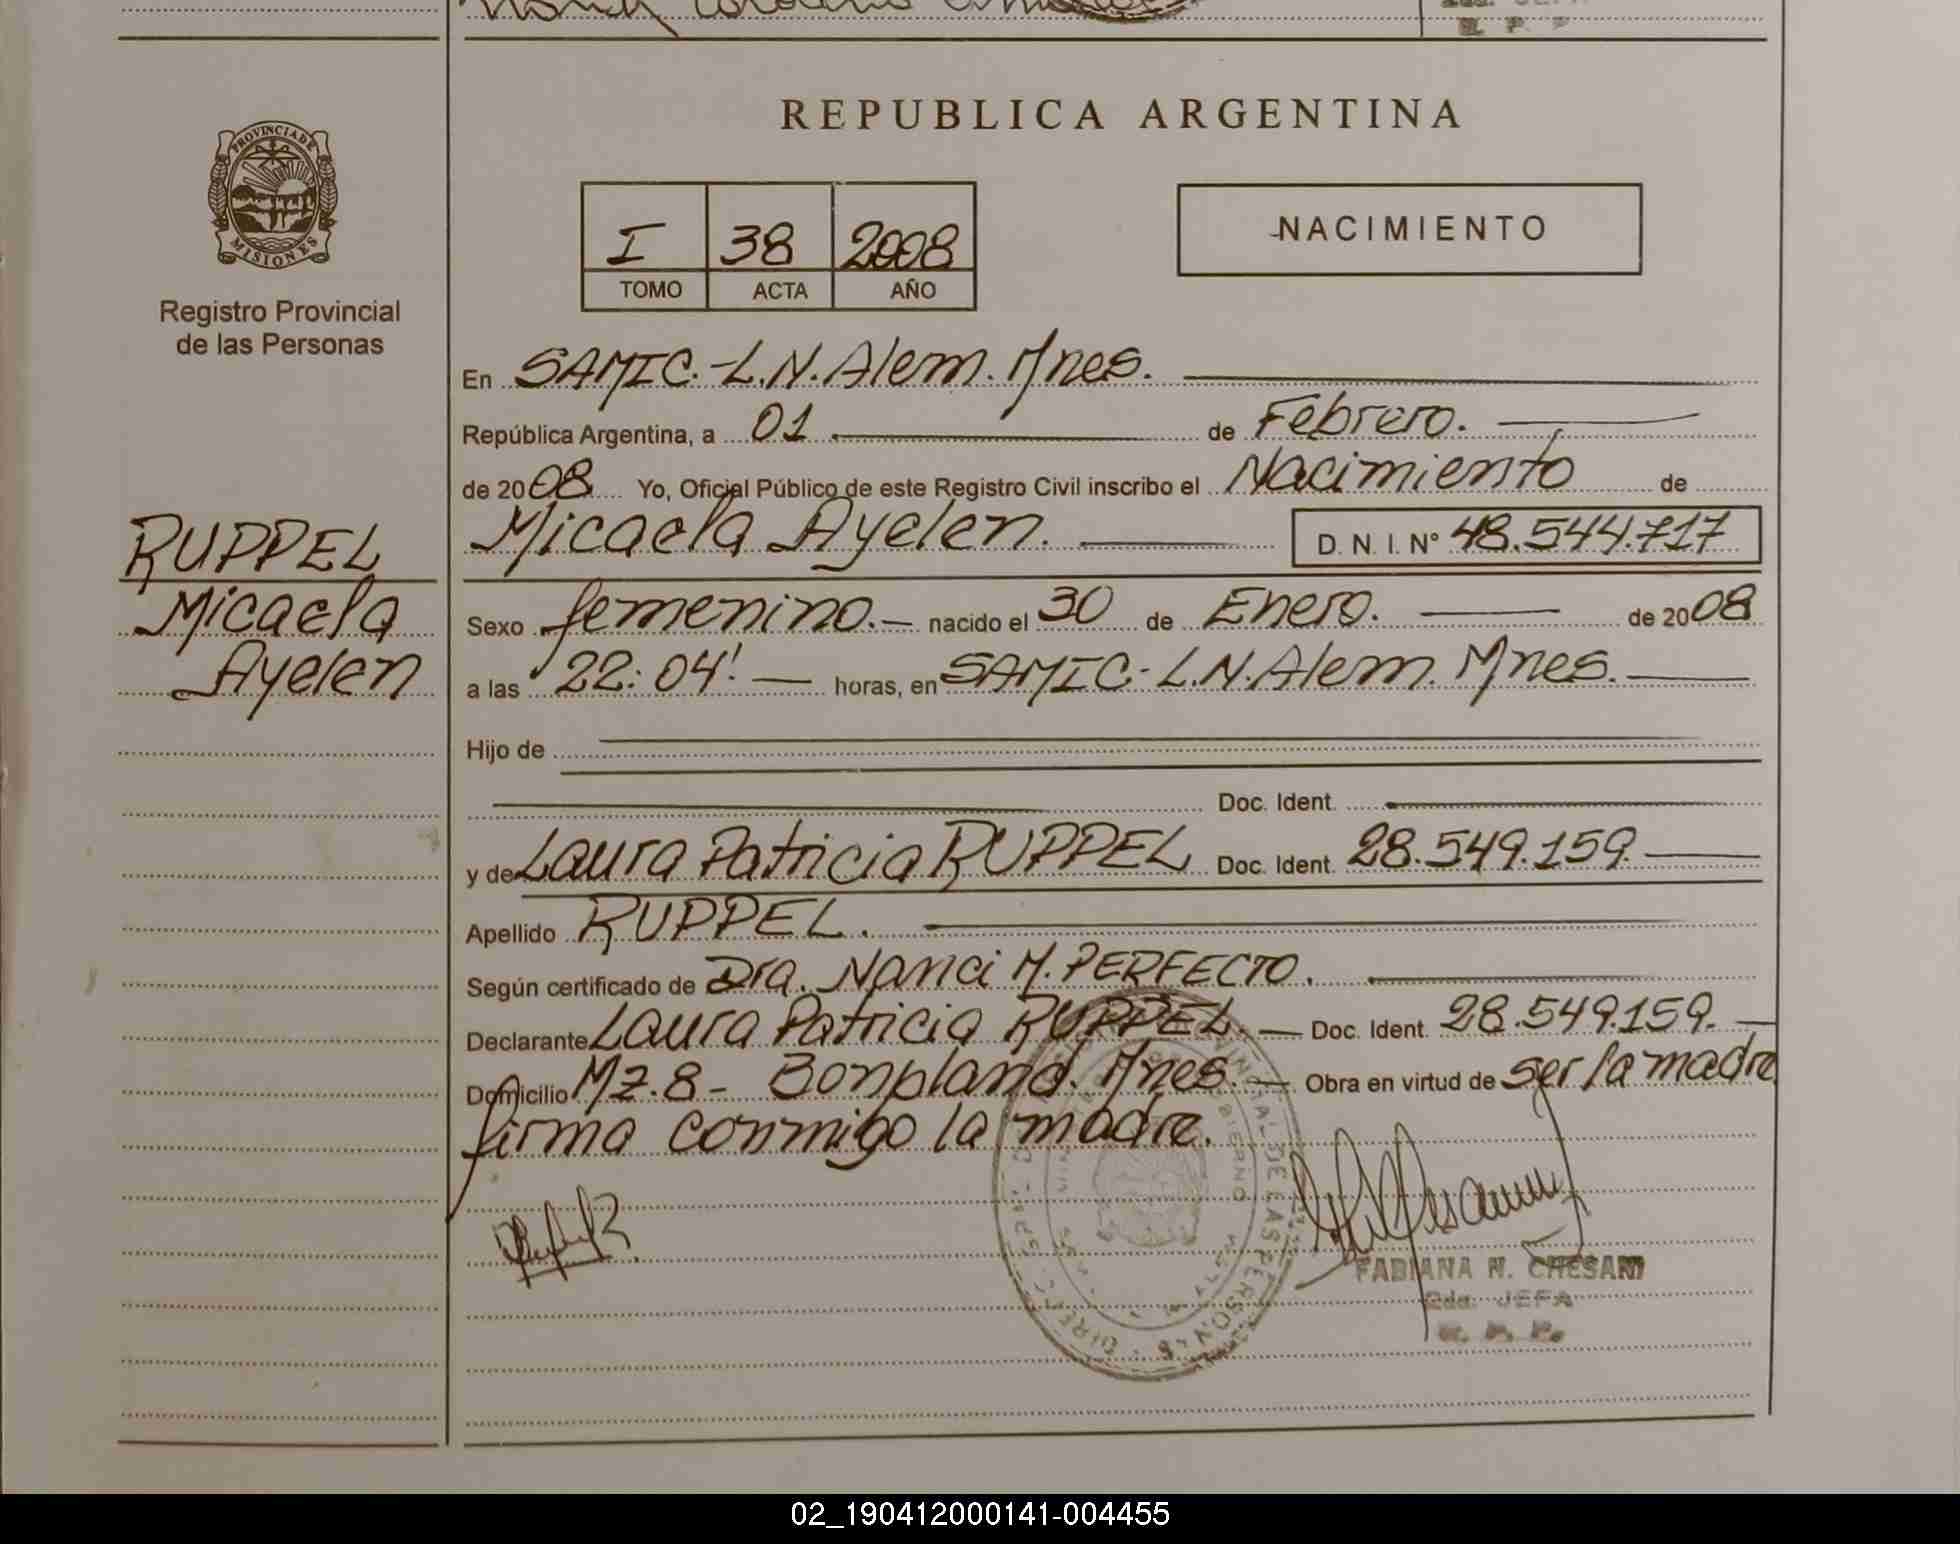 REPUBLICA ARGENTINA
PROVINCIA DE
MISIONES
Registro Provincial
de las Personas
I 38 2008
TOMO ACTA AÑO
NACIMIENTO
En SAMIC.-L.N.Alem. Mnes.
República Argentina, a 01 de Febrero.
de 2008 Yo, Oficial Público de este Registro Civil inscribo el Nacimiento de
RUPPEL
Micaela
Ayelen
Micaela Ayelen. D. N. I. Nº 48.544.717
Sexo femenino.- nacido el 30 de Enero. de 2008
a las 22:04'. horas, en SAMIC-L.N.Alem. Mnes.
Hijo de
Doc. Ident.
y de Laura Patricia RUPPEL Doc. Ident. 28.549.159.
Apellido RUPPEL.
Según certificado de Dra. Nanci M. PERFECTO.
Declarante Laura Patricia RUPPEL. Doc. Ident. 28.549.159.
Domicilio Mz.8- Bonpland. Mnes. Obra en virtud de ser la madre
firma conmigo la madre.
FABIANA N. CHESANI
2da. JEFA
R. P. P.
02_190412000141-004455